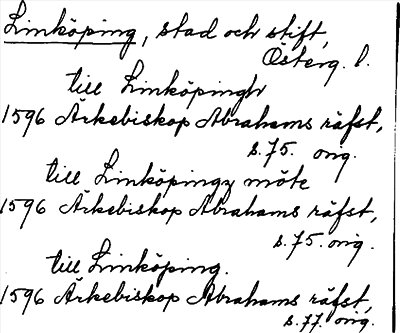 Linköping, stad och stift,
Österg. l.
till Linköpingh
1596 Ärkebiskop Abrahams räfst,
s. 75. orig.
till Linköpingz möte
1596 Ärkebiskop Abrahams räfst,
s. 75. orig.
till Linköping.
1596 Ärkebiskop Abrahams räfst,
s. 77. orig.